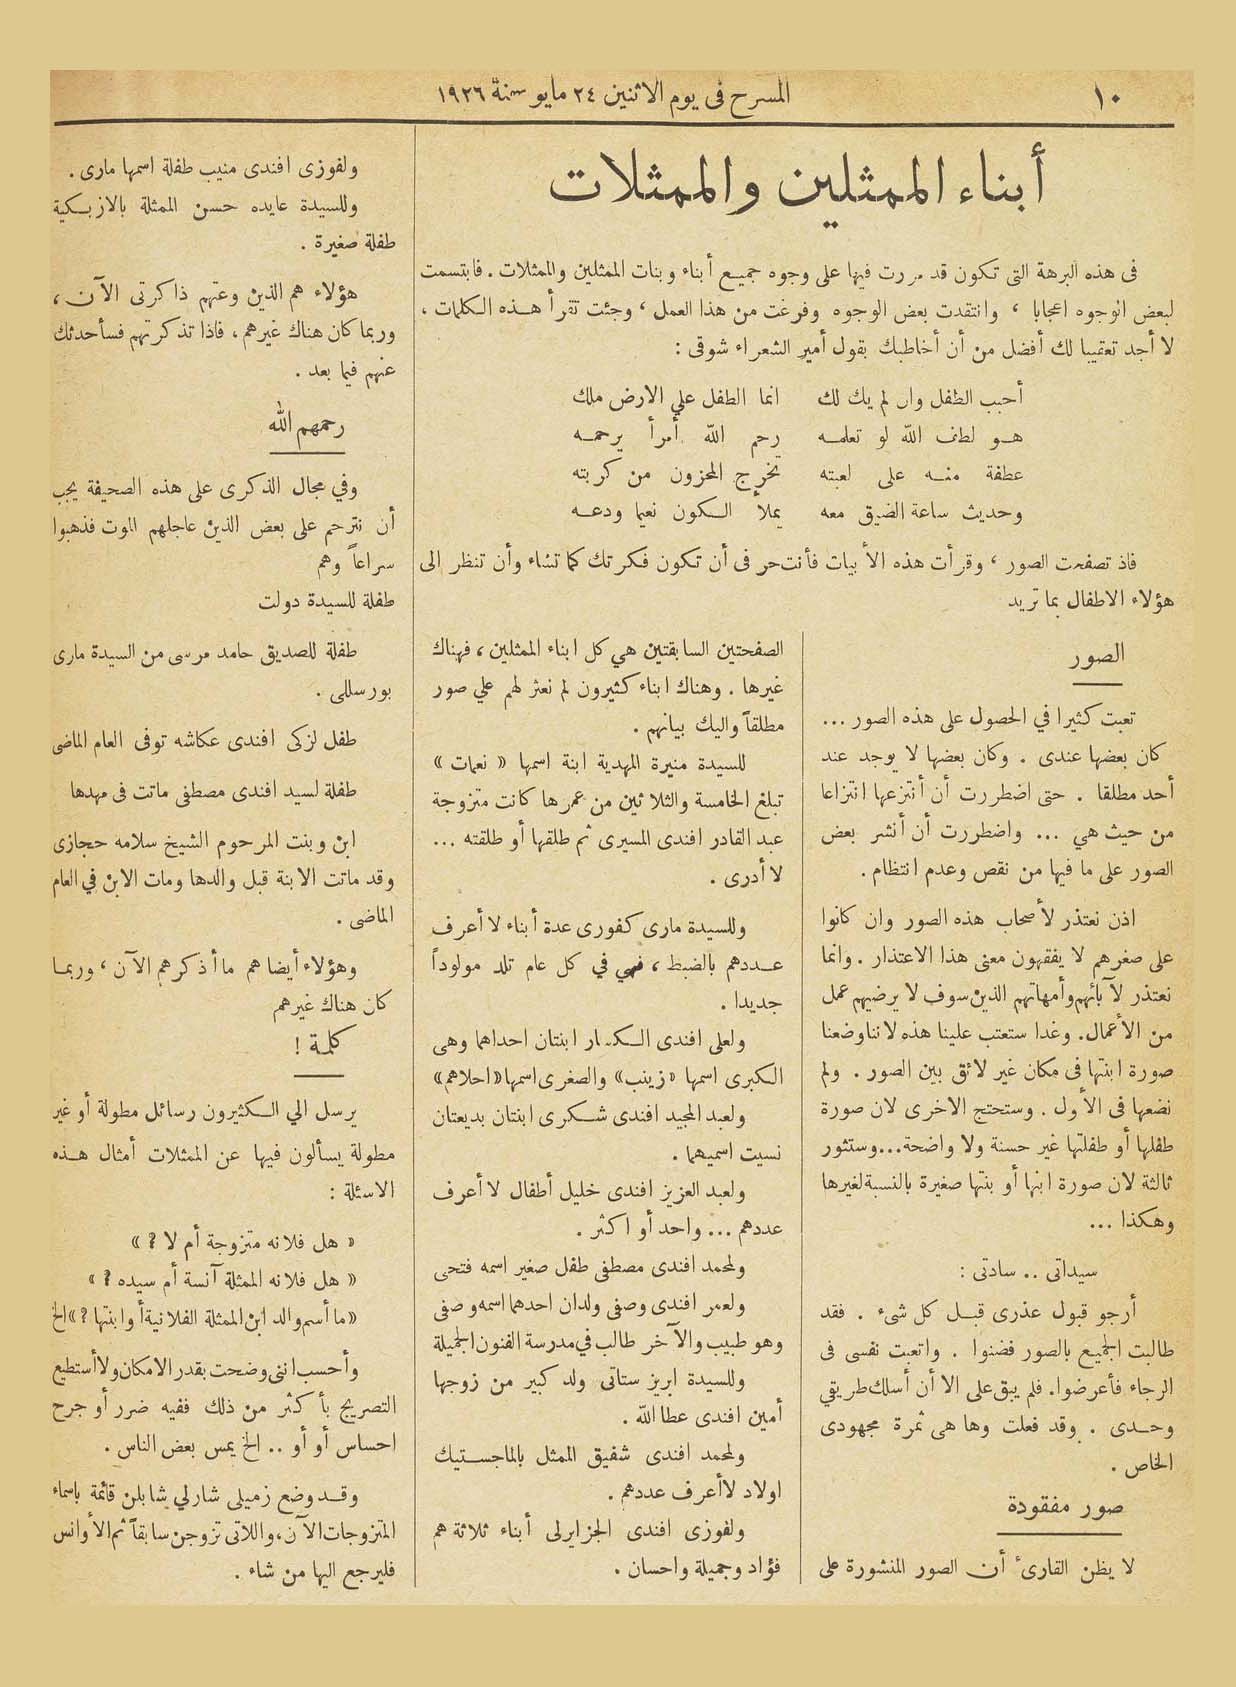 ١٠
المسرح فى يوم الاثنين ٢٤ مايو سنة ١٩٢٦
أبناء الممثلين والممثلات
فى هذه البرهة التى تكون قد مررت فيها على وجوه جميع أبناء وبنات الممثلين والممثلات . فابتسمت
لبعض الوجوه اعجابا ، وانتقدت بعض الوجوه وفرغت من هذا العمل ، وجئت تقرأ هذه الكلمات ،
لا أجد تعقيبا لك أفضل من أن أخاطبك بقول أمير الشعراء شوقى :
أحبب الطفل وان لم يك لك انما الطفل على الارض ملك
هو لطف الله لو تعلمه رحم الله أمرأ يرحمه
عطفة منه على لعبته تخرج المحزون من كربته
وحديث ساعة الضيق معه يملأ الكون نعيما ودعه
فاذ تصفحت الصور ، وقرأت هذه الأبيات فأنت حر فى أن تكون فكرتك كما تشاء وأن تنظر الى
هؤلاء الاطفال بما تريد
الصور
تعبت كثيرا في الحصول على هذه الصور ...
كان بعضها عندى . وكان بعضها لا يوجد عند
أحد مطلقا . حتى اضطررت أن أنتزعها انتزاعا
من حيث هي ... واضطررت أن أنشر بعض
الصور على ما فيها من نقص وعدم انتظام .
اذن نعتذر لأصحاب هذه الصور وان كانوا
على صغرهم لا يفقهون معنى هذا الاعتذار . وانما
نعتذر لآبائهم وأمهاتهم الذين سوف لا يرضيهم عمل
من الأعمال . وغدا ستعتب علينا هذه لاننا وضعنا
صورة ابنتها فى مكان غير لائق بين الصور . ولم
نضعها فى الأول . وستحتج الاخرى لان صورة
طفلها أو طفلتها غير حسنة ولا واضحة ... وستثور
ثالثة لان صورة ابنها أو بنتها صغيرة بالنسبة لغيرها
وهكذا ...
سيداتى .. سادتى :
أرجو قبول عذرى قبل كل شىء . فقد
طالبت الجميع بالصور فضنوا . واتعبت نفسى فى
الرجاء فأعرضوا . فلم يبق على الا أن أسلك طريقي
وحدى . وقد فعلت وها هى ثمرة مجهودى
الخاص .
صور مفقودة
لا يظن القارىء أن الصور المنشورة على
الصفحتين السابقتين هي كل ابناء الممثلين ، فهناك
غيرها . وهناك ابناء كثيرون لم نعثر لهم علي صور
مطلقاً واليك بيانهم .
للسيدة منيرة المهدية ابنة اسمها « نعمات »
تبلغ الخامسة والثلاثين من عمرها كانت متزوجة
عبد القادر افندى المسيرى ثم طلقها أو طلقته ...
لا أدرى .
وللسيدة مارى كفورى عدة أبناء لا أعرف
عددهم بالضبط ، فهي في كل عام تلد مولوداً
جديدا .
ولعلى افندى الكسار ابنتان احداهما وهى
الكبرى اسمها « زينب » والصغرى اسمها « احلاهم »
ولعبد المجيد افندى شكرى ابنتان بديعتان
نسيت اسميهما .
ولعبد العزيز افندى خليل أطفال لا أعرف
عددهم ... واحد أو اكثر .
ولمحمد افندى مصطفى طفل صغير اسمه فتحى
ولعمر افندى وصفى ولدان احدهما اسمه وصفى
وهو طبيب والآخر طالب في مدرسة الفنون الجميلة
وللسيدة ابريز ستاتى ولد كبير من زوجها
أمين افندى عطا الله .
ولمحمد افندى شفيق الممثل بالماجستيك
اولاد لا أعرف عددهم .
ولفوزى افندى الجزايرلى أبناء ثلاثة هم
فؤاد وجميلة واحسان .
ولفوزى افندى منيب طفلة اسمها مارى .
وللسيدة عايده حسن الممثلة بالازبكية
طفلة صغيرة .
هؤلاء هم الذين وعتهم ذاكرتى الآن ،
وربما كان هناك غيرهم ، فاذا تذكرتهم فسأحدثك
عنهم فيما بعد .
رحمهم الله
وفي مجال الذكرى على هذه الصحيفة يجب
أن نترحم على بعض الذين عاجلهم الموت فذهبوا
سراعاً وهم
طفلة للسيدة دولت
طفلة للصديق حامد مرسى من السيدة مارى
بورسللى .
طفل لزكى افندى عكاشه توفى العام الماضى
طفلة لسيد افندى مصطفى ماتت فى مهدها
ابن وبنت المرحوم الشيخ سلامه حجازى
وقد ماتت الابنة قبل والدها ومات الابن في العام
الماضى .
وهؤلاء أيضا هم ما أذكرهم الآن ، وربما
كان هناك غيرهم
كلمة !
يرسل الي الكثيرون رسائل مطولة أو غير
مطولة يسألون فيها عن الممثلات أمثال هذه
الاسئلة :
« هل فلانه متزوجة أم لا ؟ »
« هل فلانه الممثلة آنسة أم سيده ؟ »
« ما أسم والد ابن الممثلة الفلانية أو ابنتها ؟ » الخ
وأحسب اننى وضحت بقدر الامكان ولا أستطيع
التصريح بأكثر من ذلك ففيه ضرر أو جرح
احساس أو أو .. الخ يمس بعض الناس .
وقد وضع زميلى شارلي شابلن قائمة باسماء
المتزوجات الآن ، واللاتى تزوجن سابقاً ثم الأوانس
فليرجع اليها من شاء .